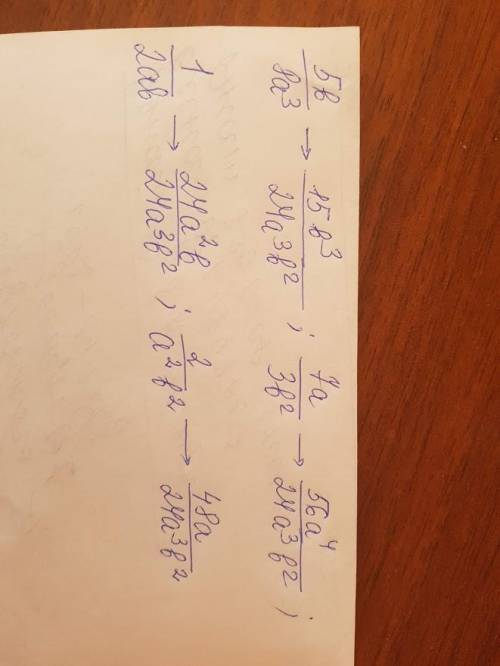 5в/8a³ → 15в³/24a³в² ; 7a/3в² → 56a⁴/24a³в² ;
1/2aв → 24a²в/24a³в² ; 2/a²в² → 48a/24a³в²